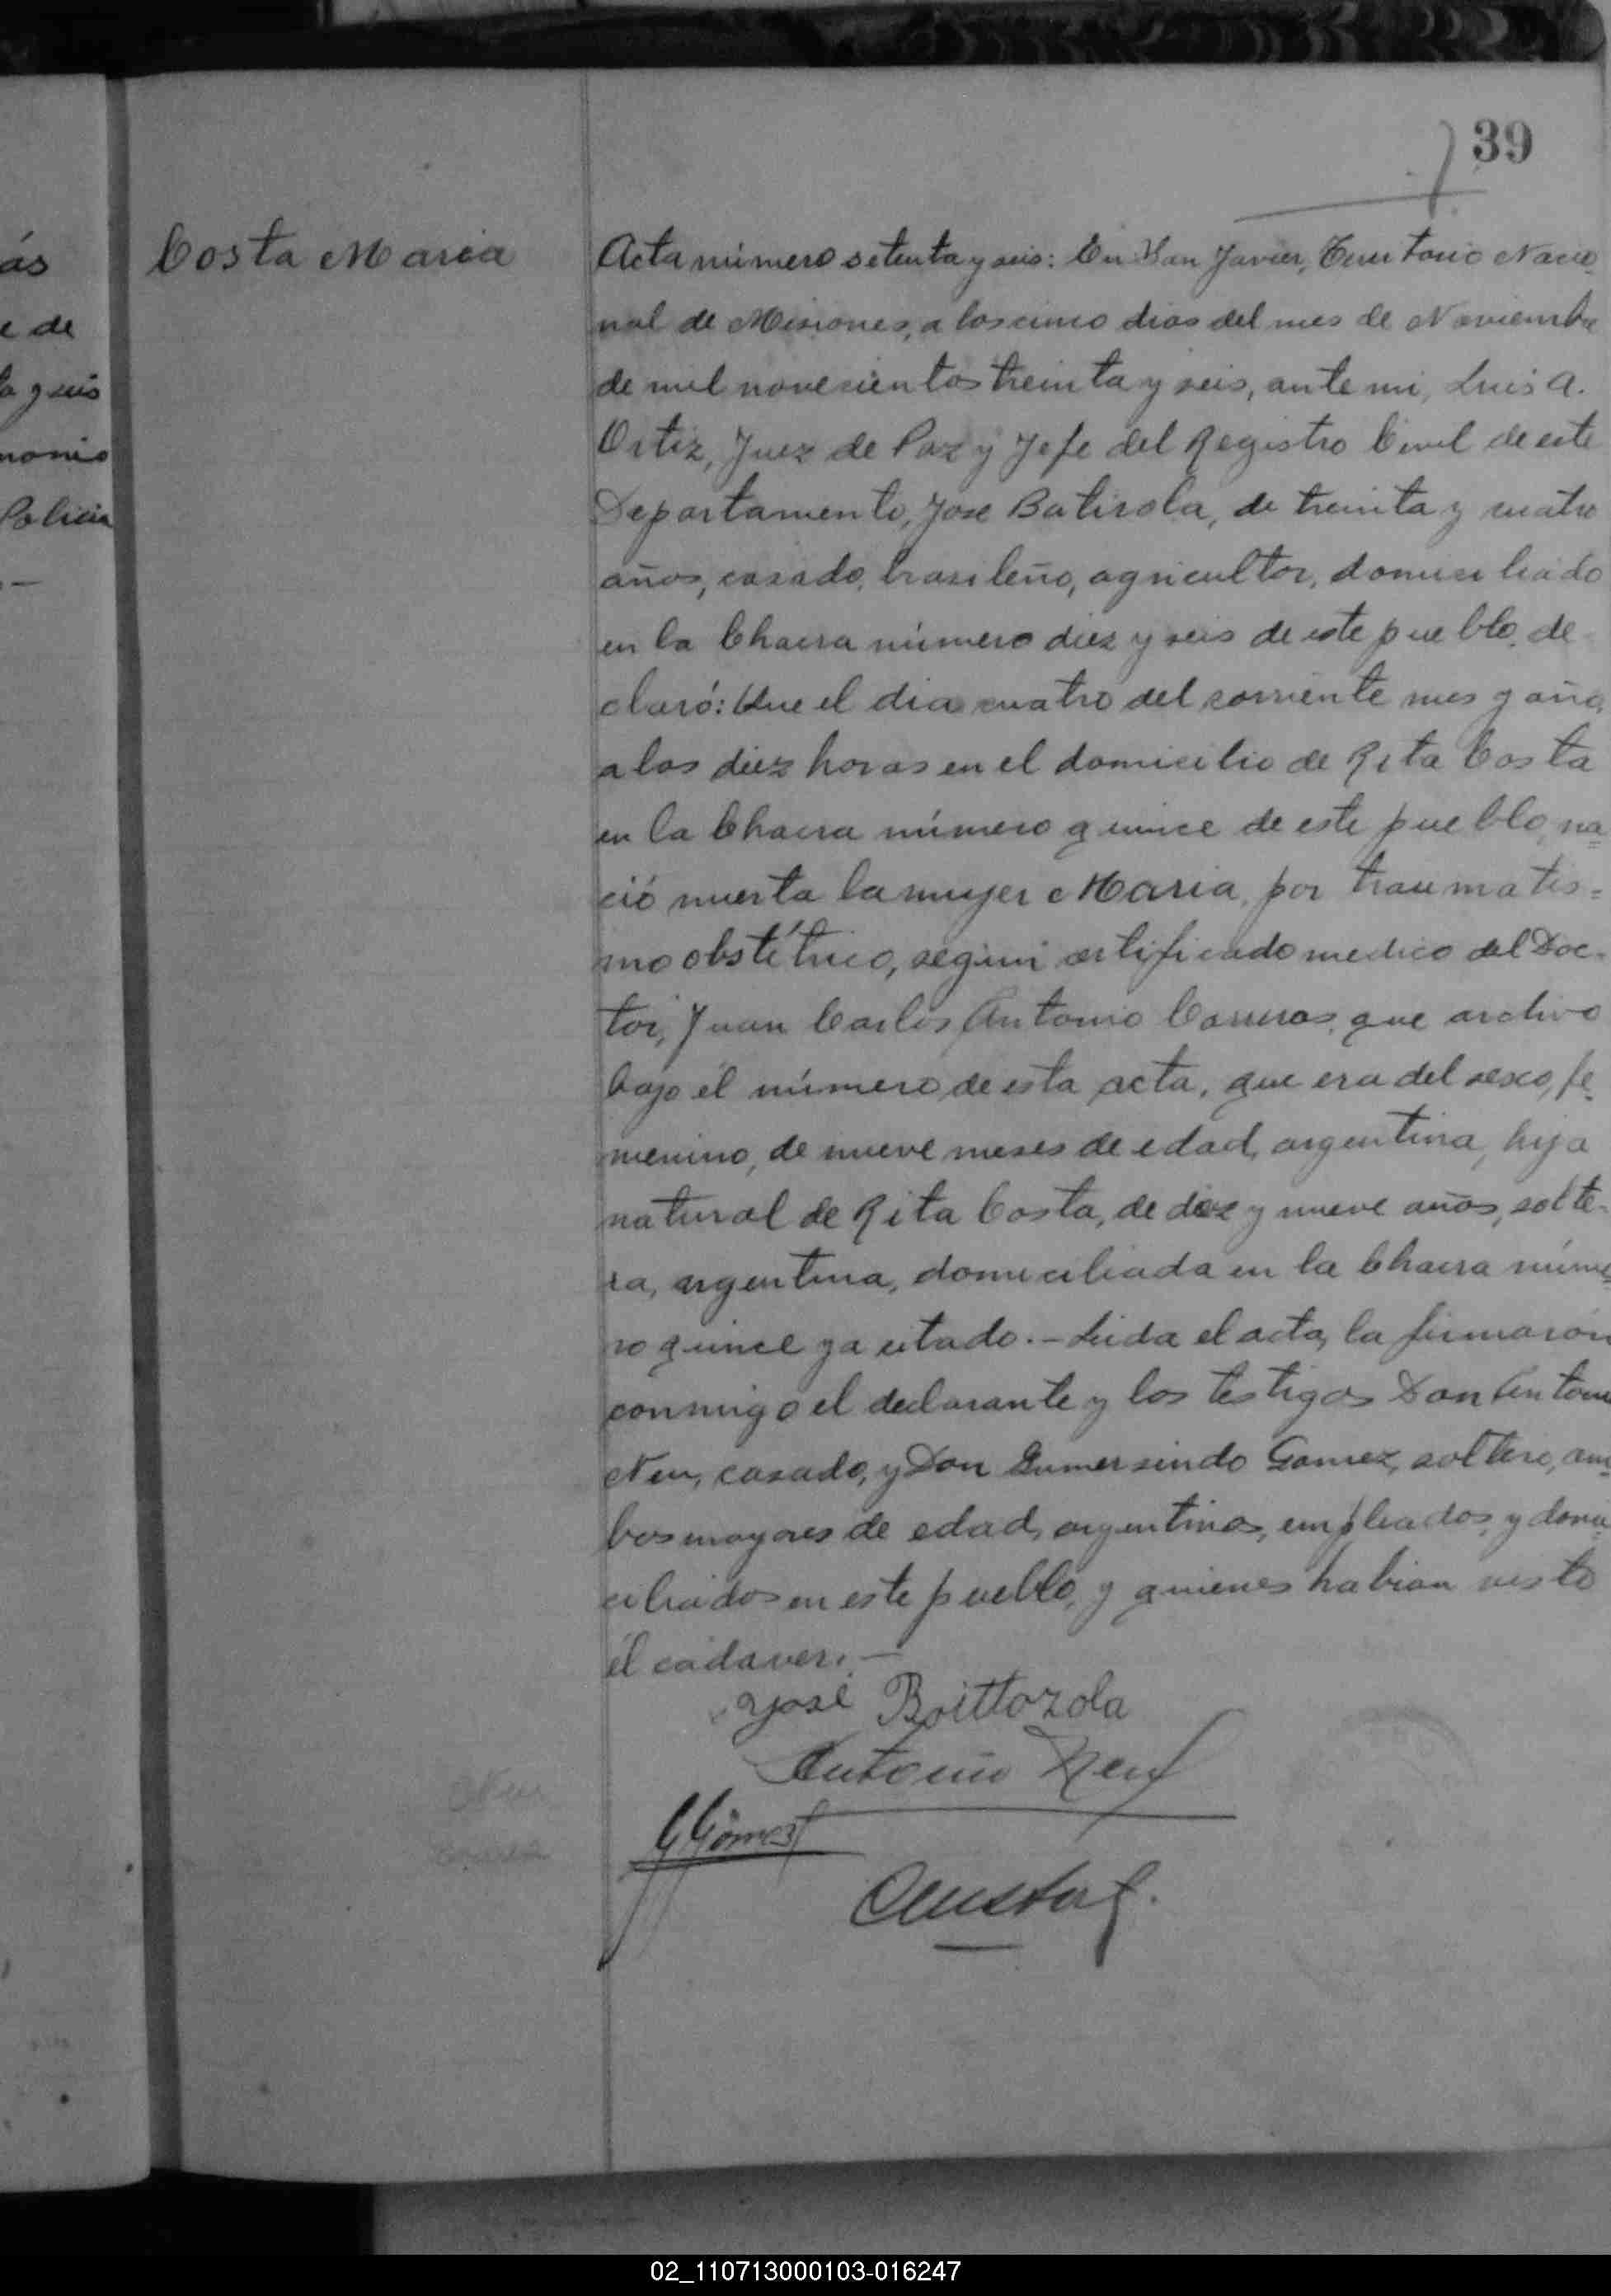 39
ás
e de
ta y seis
monio
Policia
Costa Maria
Acta número setenta y seis: En San Javier, Territorio Nacio-
nal de Misiones, a los cinco dias del mes de Noviembre
de mil novecientos treinta y seis, ante mi, Luis A.
Ortiz, Juez de Paz y Jefe del Registro Civil de este
Departamento, Jose Batirola, de treinta y cuatro
años, casado, brasileño, agricultor, domiciliado
en la Chacra número diez y seis de este pueblo, de-
claró: Que el dia cuatro del corriente mes y año,
a las diez horas en el domicilio de Rita Costa
en la Chacra número quince de este pueblo, na-
ció muerta la mujer Maria, por traumatis=
mo obstétrico, según certificado medico del Doc-
tor, Juan Carlos Antonio Carreras, que archivo
bajo el número de esta acta, que era del sexo, fe-
menino, de nueve meses de edad, argentina, hija
natural de Rita Costa, de diez y nueve años, solte-
ra, argentina, domiciliada en la Chacra núme-
ro quince ya citado.- Leida el acta, la firmaron
conmigo el declarante y los testigos Don Antonio
Neu, casado, y Don Gumersindo Gomez, soltero, am-
bos mayores de edad, argentinos, empleados, y domi-
ciliados en este pueblo, y quienes habian visto
el cadaver.-
José Boittozola
Antonio Neu
G Gómez
02_110713000103-016247